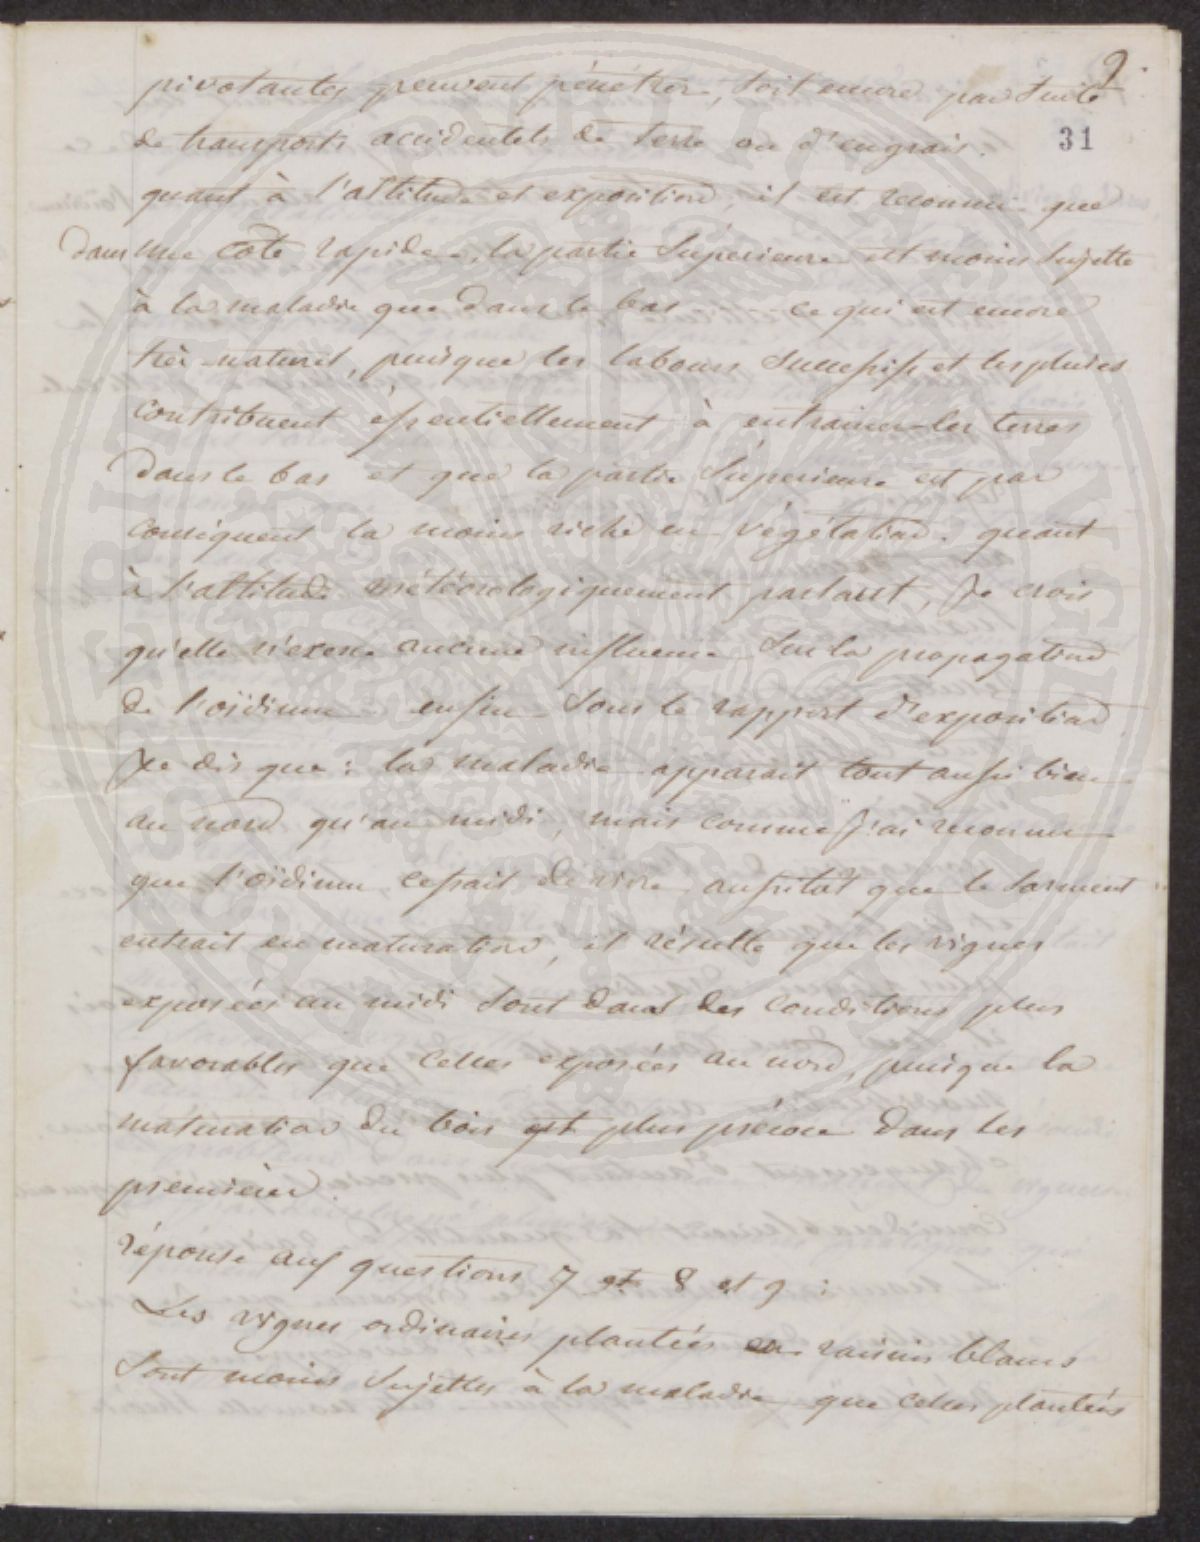 9.
31
pivotantes peuvent pénétrer, soit encore par suite
de transports accidentels de terre ou d'engrais.
quant à l'altitude et exposition, il est reconnu que
dans une côte rapide, la partie supérieure est moins sujette
à la maladie que dans le bas ce qui est encore
très naturel, puisque les labours successifs et les pluies
contribuent essentiellement à entrainer les terres
dans le bas et que la partie supérieure est par
conséquent la moins riche en végétation. quant
à l'altitude météorologiquement parlant, Je crois
qu'elle n'exerce aucune influence sur la propagation
de l'oïdium enfin sous le rapport d'exposition
Je dis que : la maladie apparait tout aussi bien
au nord qu'au midi, mais comme j'ai reconnu
que l'oïdium cessait de vivre aussitôt que le sarment
entrait en maturation, il résulte que les vignes
exposées au midi sont dans des conditions plus
favorables que celles exposées au nord, puisque la
maturation du bois est plus précoce dans les
premières.
réponse aux questions 7 et 8 et 9 :
Les vignes ordinaires plantées en raisins blancs
sont moins sujettes à la maladie que celles plantées